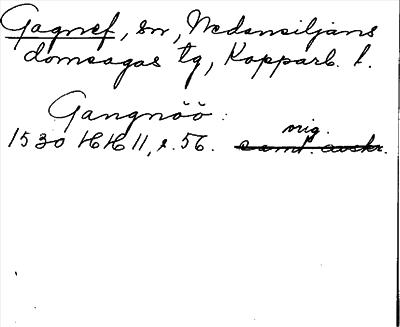 Gagnef, sn, Nedansiljans
domsagas tg, Kopparb. l.
Gangnöö:
orig.
1530 HH 11, s. 56. samt. avskr.